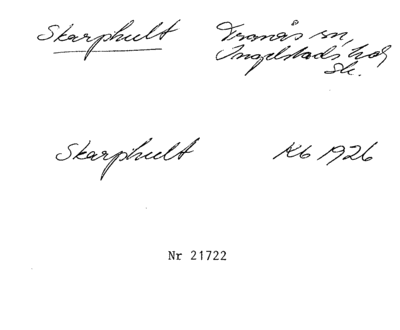 Skarphult
Tranås sn,
Ingelstads hd
Sk.
Skarphult
Kb 1926
Nr 21722